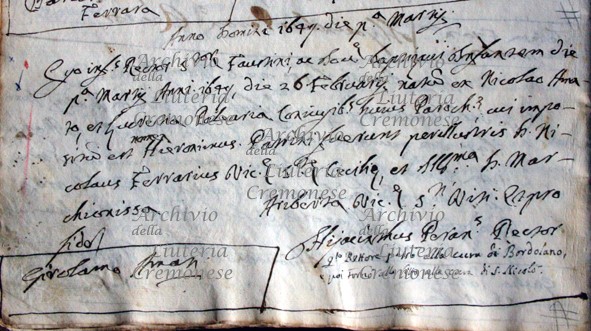 Ferrara
Anno Domini 1649 die p.a Martij
Ego infr.s Rector S.ti Faustini, ac Iovi baptizavi Infantem die
p.a Martij Anni 1649, die 26 Februarij natũ ex Nicolao Ama
to, et Lucretia Palearia Coniugib.s huius Paroch.æ cui impo-
situm est nomen Hieronimus. Patrini fuerunt perillustris D. Ni-
colaus Ferrarius Vic.æ S.tæ Cecilię, et Ill.ma D. Mar-
chionissa Ariberta Vic.æ S.ti Viti. Et pro
fide
Hijacinthus Rector
Girolamo Amati
q.to Rettore alla cura di Bordolano,
di S. Nicolò
Archivio
della
Liuteria
Cremonese
Archivio
della
Liuteria
Cremonese
Archivio
della
Liuteria
Cremonese
Archivio
della
Liuteria
Cremonese
Archivio
della
Liuteria
Cremonese